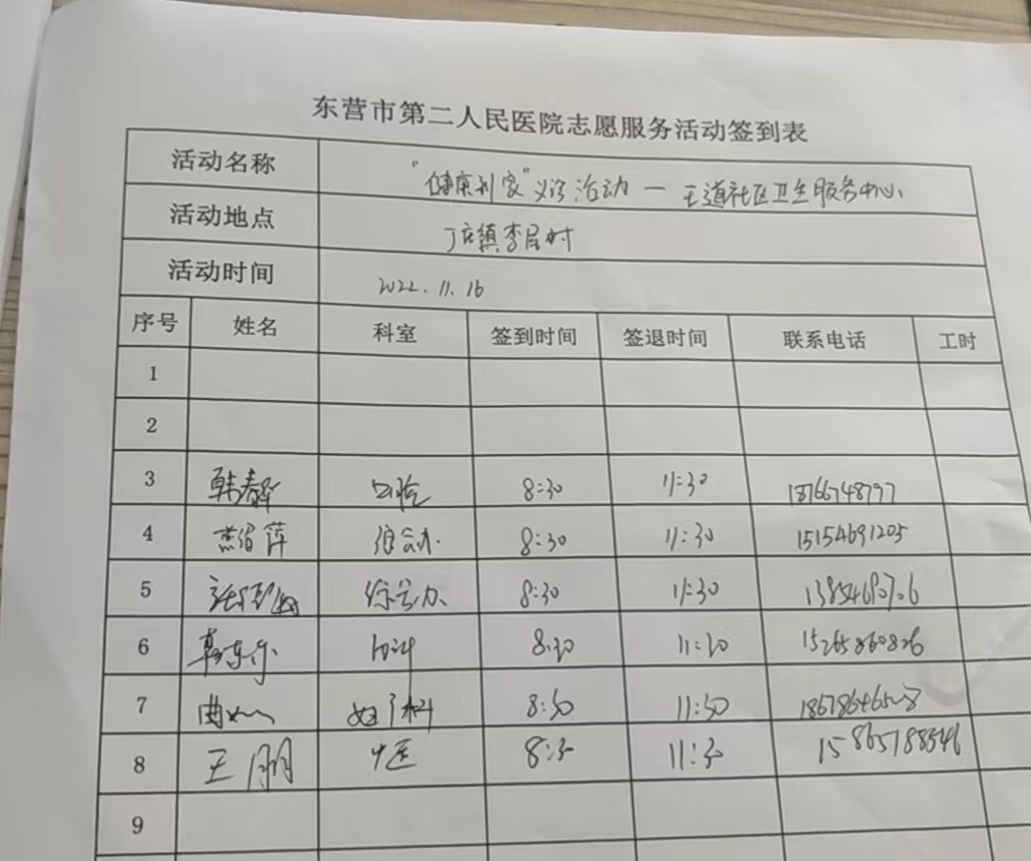 东营市第二人民医院志愿服务活动签到表
活动名称 "健康到家"义诊活动 — 王道社区卫生服务中心
活动地点 丁庄镇李屋村
活动时间 2022.11.16
序号 姓名 科室 签到时间 签退时间 联系电话 工时
1
2
3 韩春 8:30 11:30 18766748797
4 萍 综合办 8:30 11:30 15154691205
5 综合办 8:30 11:30
6 内科 8:30 11:30 15265860826
7 曲 妇科 8:30 11:30
8 王朋 中医 8:30 11:30 15865188546
9